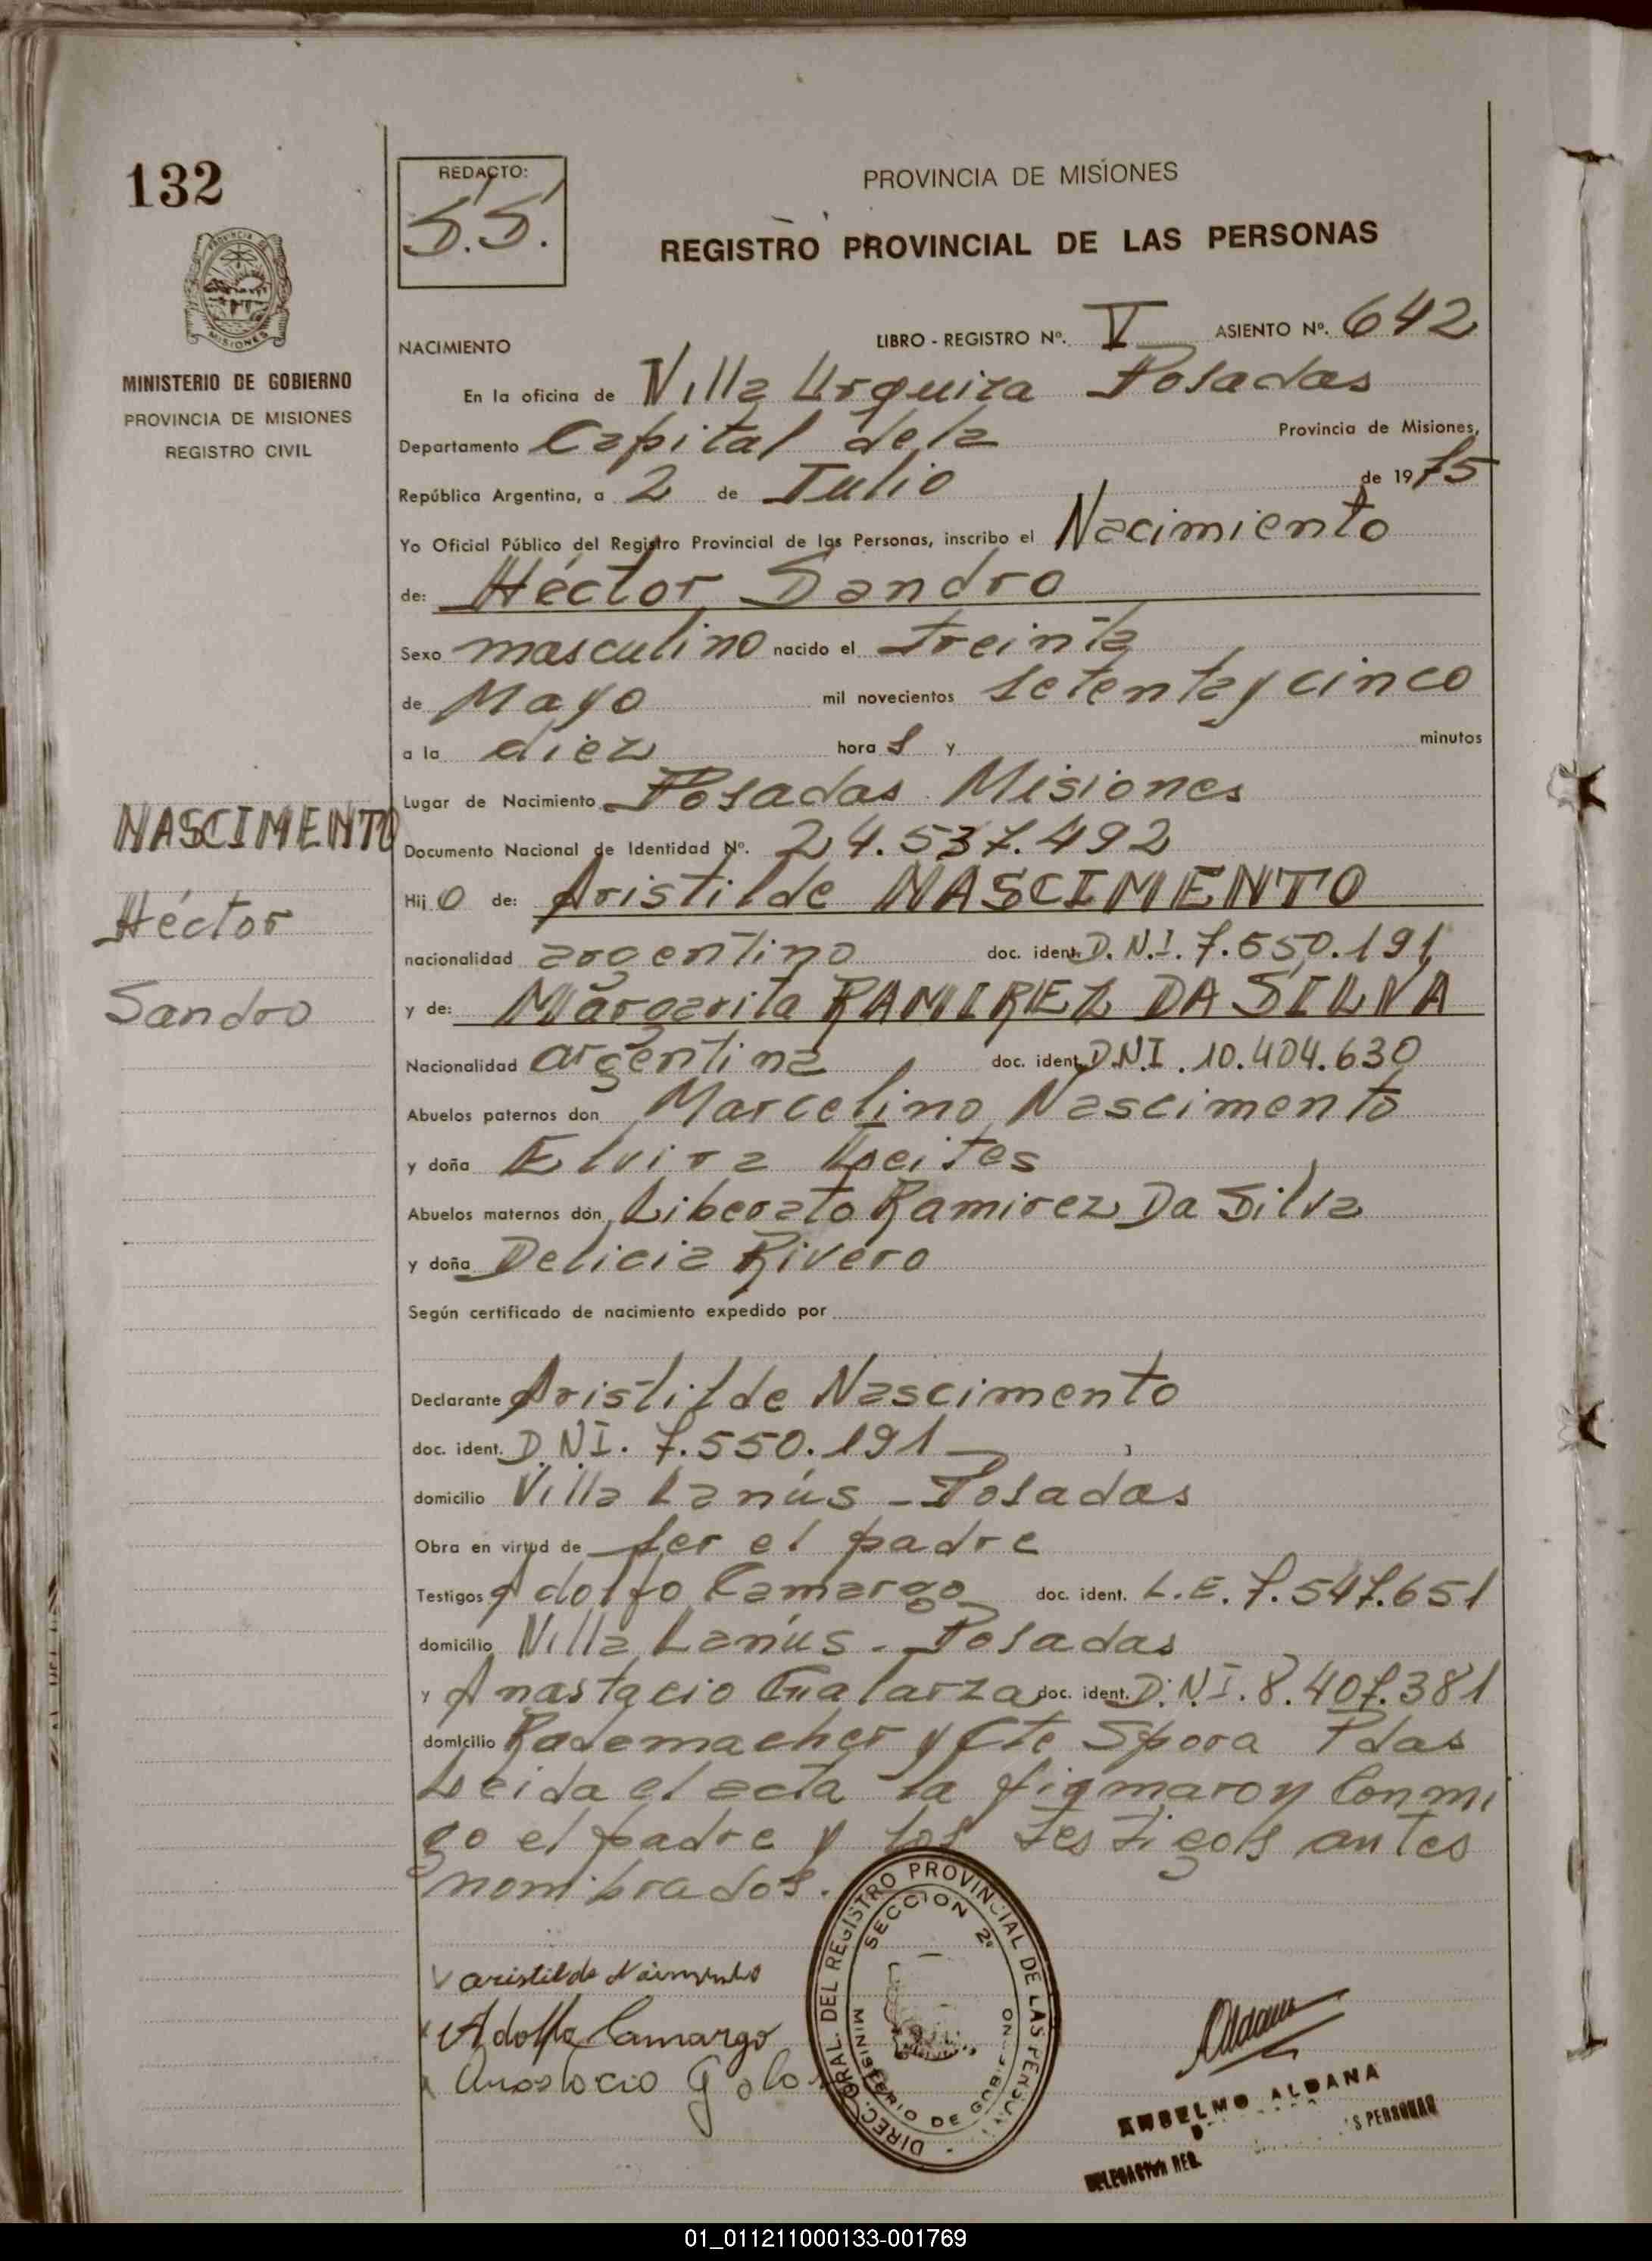 132
REDACTO:
S.S.
PROVINCIA DE MISIONES
REGISTRO PROVINCIAL DE LAS PERSONAS
PROVINCIA DE
MISIONES
MINISTERIO DE GOBIERNO
PROVINCIA DE MISIONES
REGISTRO CIVIL
NACIMIENTO LIBRO - REGISTRO Nº. V ASIENTO Nº. 642
En la oficina de Villa Urquiza Posadas
Departamento Capital de la Provincia de Misiones,
República Argentina, a 2 de Julio de 1975
Yo Oficial Público del Registro Provincial de las Personas, inscribo el Nacimiento
de: Héctor Sandro
Sexo masculino nacido el treinta
de Mayo mil novecientos setenta y cinco
a la diez hora s y minutos
Lugar de Nacimiento Posadas Misiones
NASCIMENTO
Héctor
Sandro
Documento Nacional de Identidad Nº. 24.537.492
Hijo de: Aristilde NASCIMENTO
nacionalidad argentino doc. ident. D.N.I. 7.550.191
y de: Margarita RAMIREZ DA SILVA
Nacionalidad argentina doc. ident. D.N.I. 10.404.630
Abuelos paternos don Marcelino Nascimento
y doña Elvira
Abuelos maternos don Liberato Ramirez Da Silva
y doña Delicia Rivero
Según certificado de nacimiento expedido por
Declarante Aristilde Nascimento
doc. ident. D.N.I. 7.550.191
domicilio Villa Lanús - Posadas
Obra en virtud de ser el padre
Testigos Adolfo Camargo doc. ident. L.E. 7.547.651
domicilio Villa Lanús - Posadas
y Anastacio Galarza doc. ident. D.N.I. 8.407.381
domicilio Rademacher y Cte Spora Pdas
Leida el acta la firmaron Conmi
go el padre y los testigos antes
nombrados.
DIREC. GRAL. DEL REGISTRO PROVINCIAL DE LAS PERSON
SECCION 2ª
MINISTERIO DE GOBIERNO
Adolfo Camargo
Aldana
ANSELMO ALDANA
S PERSONAS
DELEGACION REG.
01_011211000133-001769